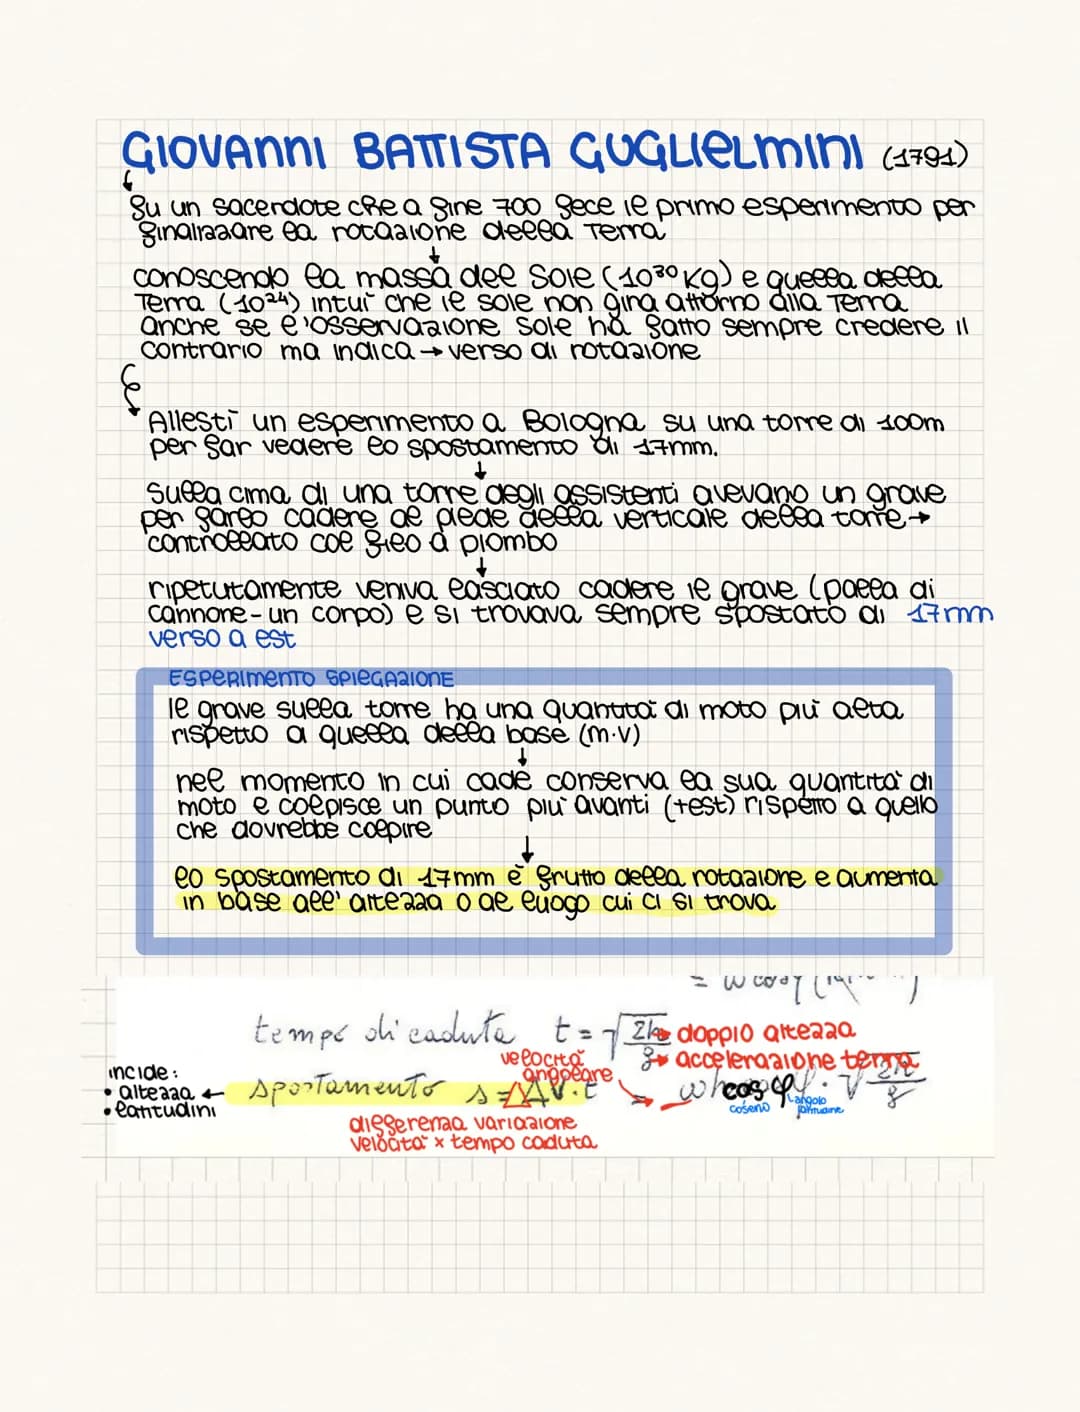 GIOVANNI BATTISTA GUGLIELMINI (1791)
fu un sacerdote che a fine 700 fece il primo esperimento per
finalizzare la rotazione della Terra
conoscendo la massa del Sole (10³⁰ kg) e quella della
Terra (10²⁴) intuì che il sole non gira attorno alla Terra
anche se l'osservazione Sole ha fatto sempre credere il
contrario ma indica → verso di rotazione
Allestì un esperimento a Bologna su una torre di 100m
per far vedere lo spostamento di 17mm.
Sulla cima di una torre degli assistenti avevano un grave
per farlo cadere al piede della verticale della torre →
controllato col filo a piombo
ripetutamente veniva lasciato cadere il grave (palla di
cannone - un corpo) e si trovava sempre spostato di 17mm
verso a est
ESPERIMENTO SPIEGAZIONE
il grave sulla torre ha una quantità di moto più alta
rispetto a quella della base (m·v)
nel momento in cui cade conserva la sua quantità di
moto e colpisce un punto più avanti (+est) rispetto a quello
che dovrebbe colpire
lo spostamento di 17mm è frutto della rotazione e aumenta
in base all'altezza o al luogo cui ci si trova
tempo di caduta t = √2h/g → doppio altezza
→ accelerazione terra
velocità angolare
incide:
• altezza ←
• latitudini
spostamento s = ΔV·t = ωh cos φ · √2h/g
coseno
angolo
differenza variazione
velocità x tempo caduta